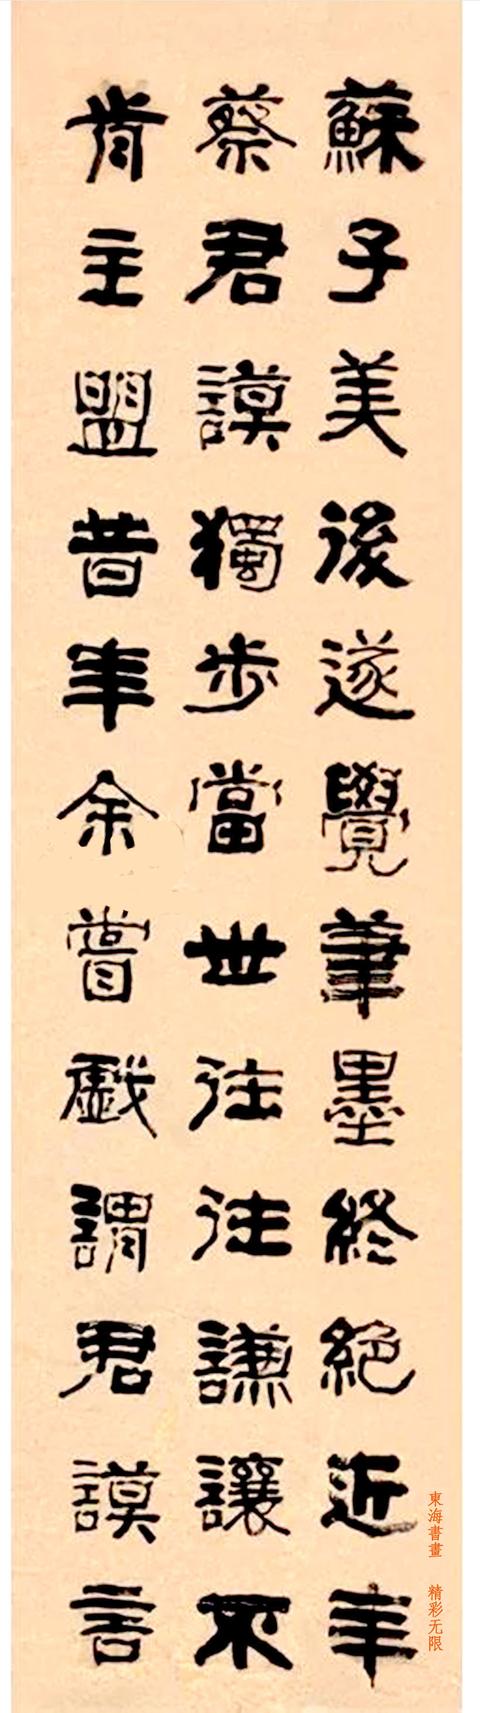 蘇子美後遂覺筆墨終絕近年
蔡君謨獨步當世往往謙讓不
肯主盟昔年余嘗戲謂君謨言
東海書畫 精彩无限